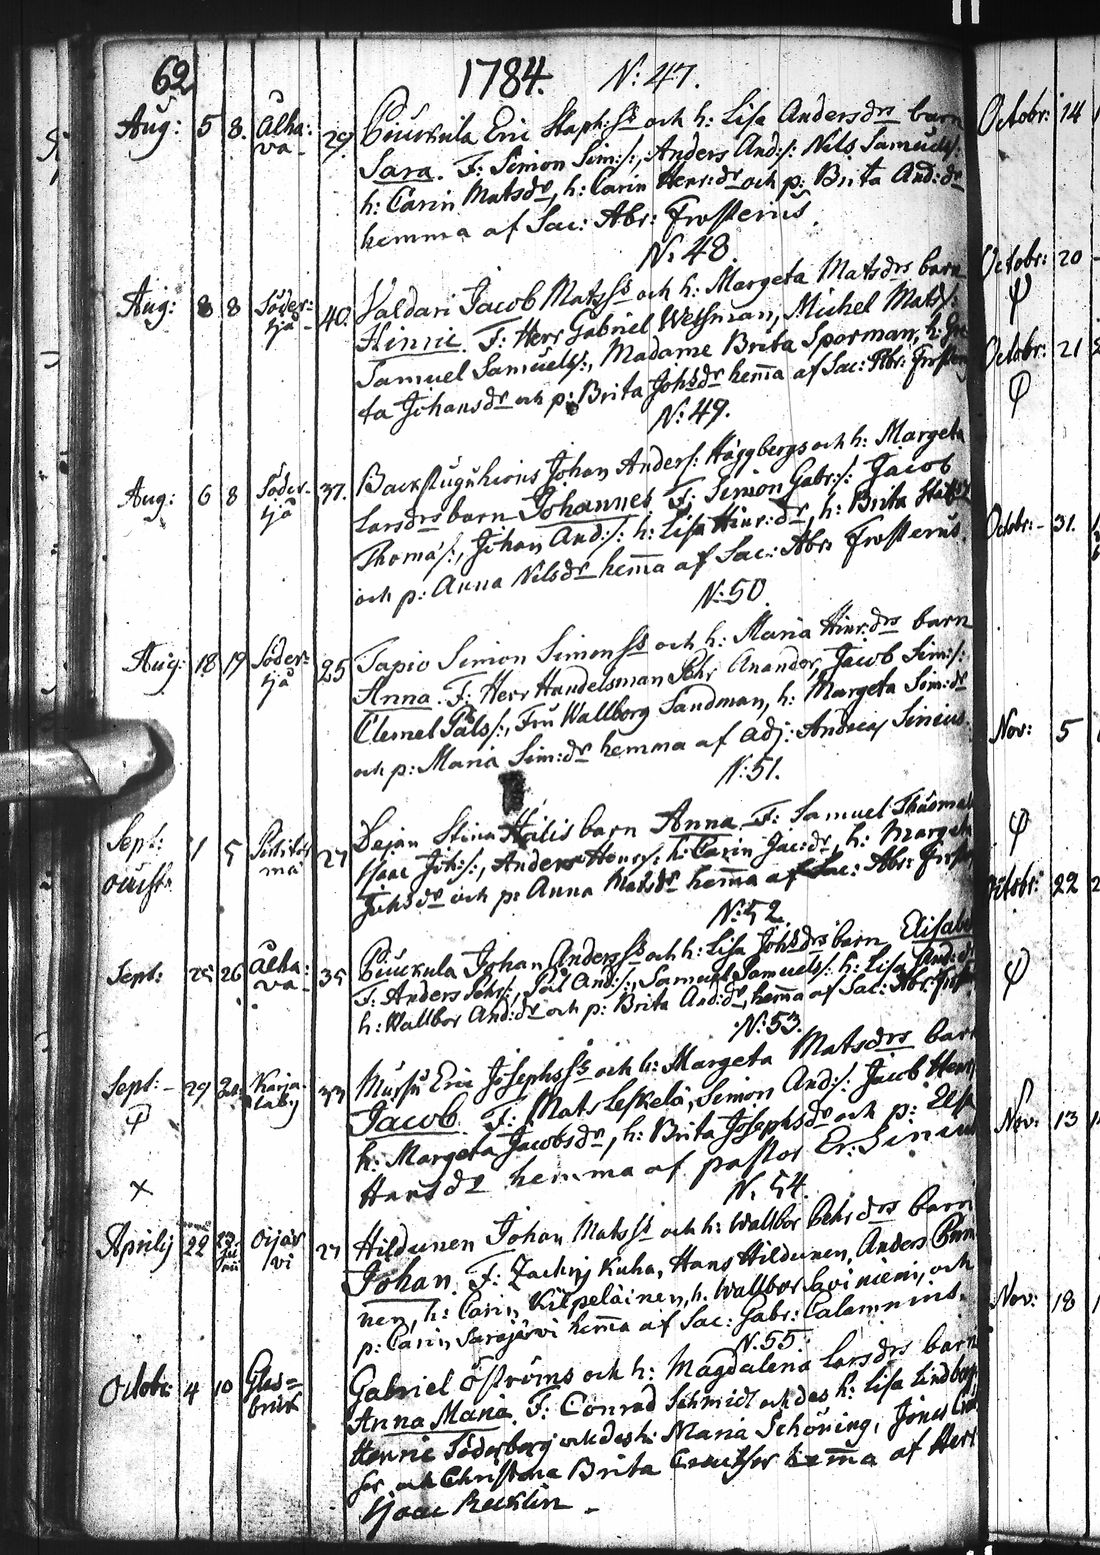 62 1784. N: 47.
Aug: 5 8. Alha: 29 Ciuckula Eric Staph:ss och h: Lisa Andersdrs barn
va Sara. F: Simon Sim:s:, Anders And:s: Nils Samuels:
h: Carin Matsdr, h: Carin Henr:dr och p: Brita And:dr
hemma af Sac: Abr: Frosterus.
N: 48.
Aug: 8 8 Söder: 40. Valdari Jacob Matsss och h: Margeta Matsdrs barn
sjå Hinric. F: Herr Gabriel Wethman, Michel Mats:
Samuel Samuels:, Madame Brita Sporman, h: Gre
ta Johansdr och p: Brita Johsdr hema af Sac: Abr: Froster
N: 49.
Aug: 6 8 Söder 37. Backstuguhions Johan Anders: Häggbergs och h: Margeta
sjå Larsdrs barn Johannes F: Simon Gabr:s: Jacob
Thomas:, Johan And:s: h: Lisa Hinr:dr, h: Brita
och p: Anna Nilsdr hema af Sac: Abr: Frosterus
N: 50
Aug: 18 19 Söder: 25 Tapio Simon Simonss och h: Maria Hinr:drs barn
sjå Anna. F: Herr Handelsman Pehr Anander, Jacob Sim:s:
Clemet Påls:, Fru Wallborg Sandman, h: Margeta Sim:dr
och p: Maria Sim:dr hemma af Adj: Andreas Sinius.
N: 51.
Sept: 1 5 27 Dejan Stina Halis barn Anna F: Samuel Thuomas
ma Isaac Joh:s:, Anders Henr:s: h: Carin Jac:dr, h: Margeta
Johsdr och p: Anna Matsdr hema af Sac: Abr: Frost
N: 52.
Sept: 25 26 Alha: 35 Ciuckula Johan Andersss och h: Lisa Johsdrs barn Elisabet
va F: Anders Pehrs:, Pål And:s:, Samuel Samuels: h: Lisa And:dr
h: Wallbor And:dr och p: Brita And:dr, hema af Sac: Abr: Frost
N: 53.
Sept: 29 Karja 33 Mursu Eric Josephsss och h: Margeta Matsdrs barn
laby Jacob. F: Mats Leskelä, Simon And:s: Jacob Henr
h: Margeta Jacobsdr, h: Brita Josephsdr och p: Elsa
Hansdr hemma af pastor Er: Sinius
N: 54.
Aprilij 22 23 Oijär 27 Hildunen Johan Matsss och h: Wallbor Pehrdrs barn
vi Johan. F: Zachrij Kuha, Hans Hildunen, Anders
nen, h: Carin Kilpeläinen, h: Wallbor Saviniemi, och
p: Carin Sarajärvi hema af Sac: Gabr: Calamnius.
N: 55.
Octobr: 4 10 Glas= Gabriel Öströms och h: Magdalena Larsdrs barn
bruk Anna Maria. F: Conrad Schmidt och des h: Lisa Lindberg
Henric Söderberg och des h: Maria Schöning, Jonas
och Christina Brita hema af Herr
Isaac Recklin
Octobr: 14
Octobr: 20
Octobr: 21
Octobr: 31.
Nov: 5
Octobr: 22
Nov: 13
Nov: 18